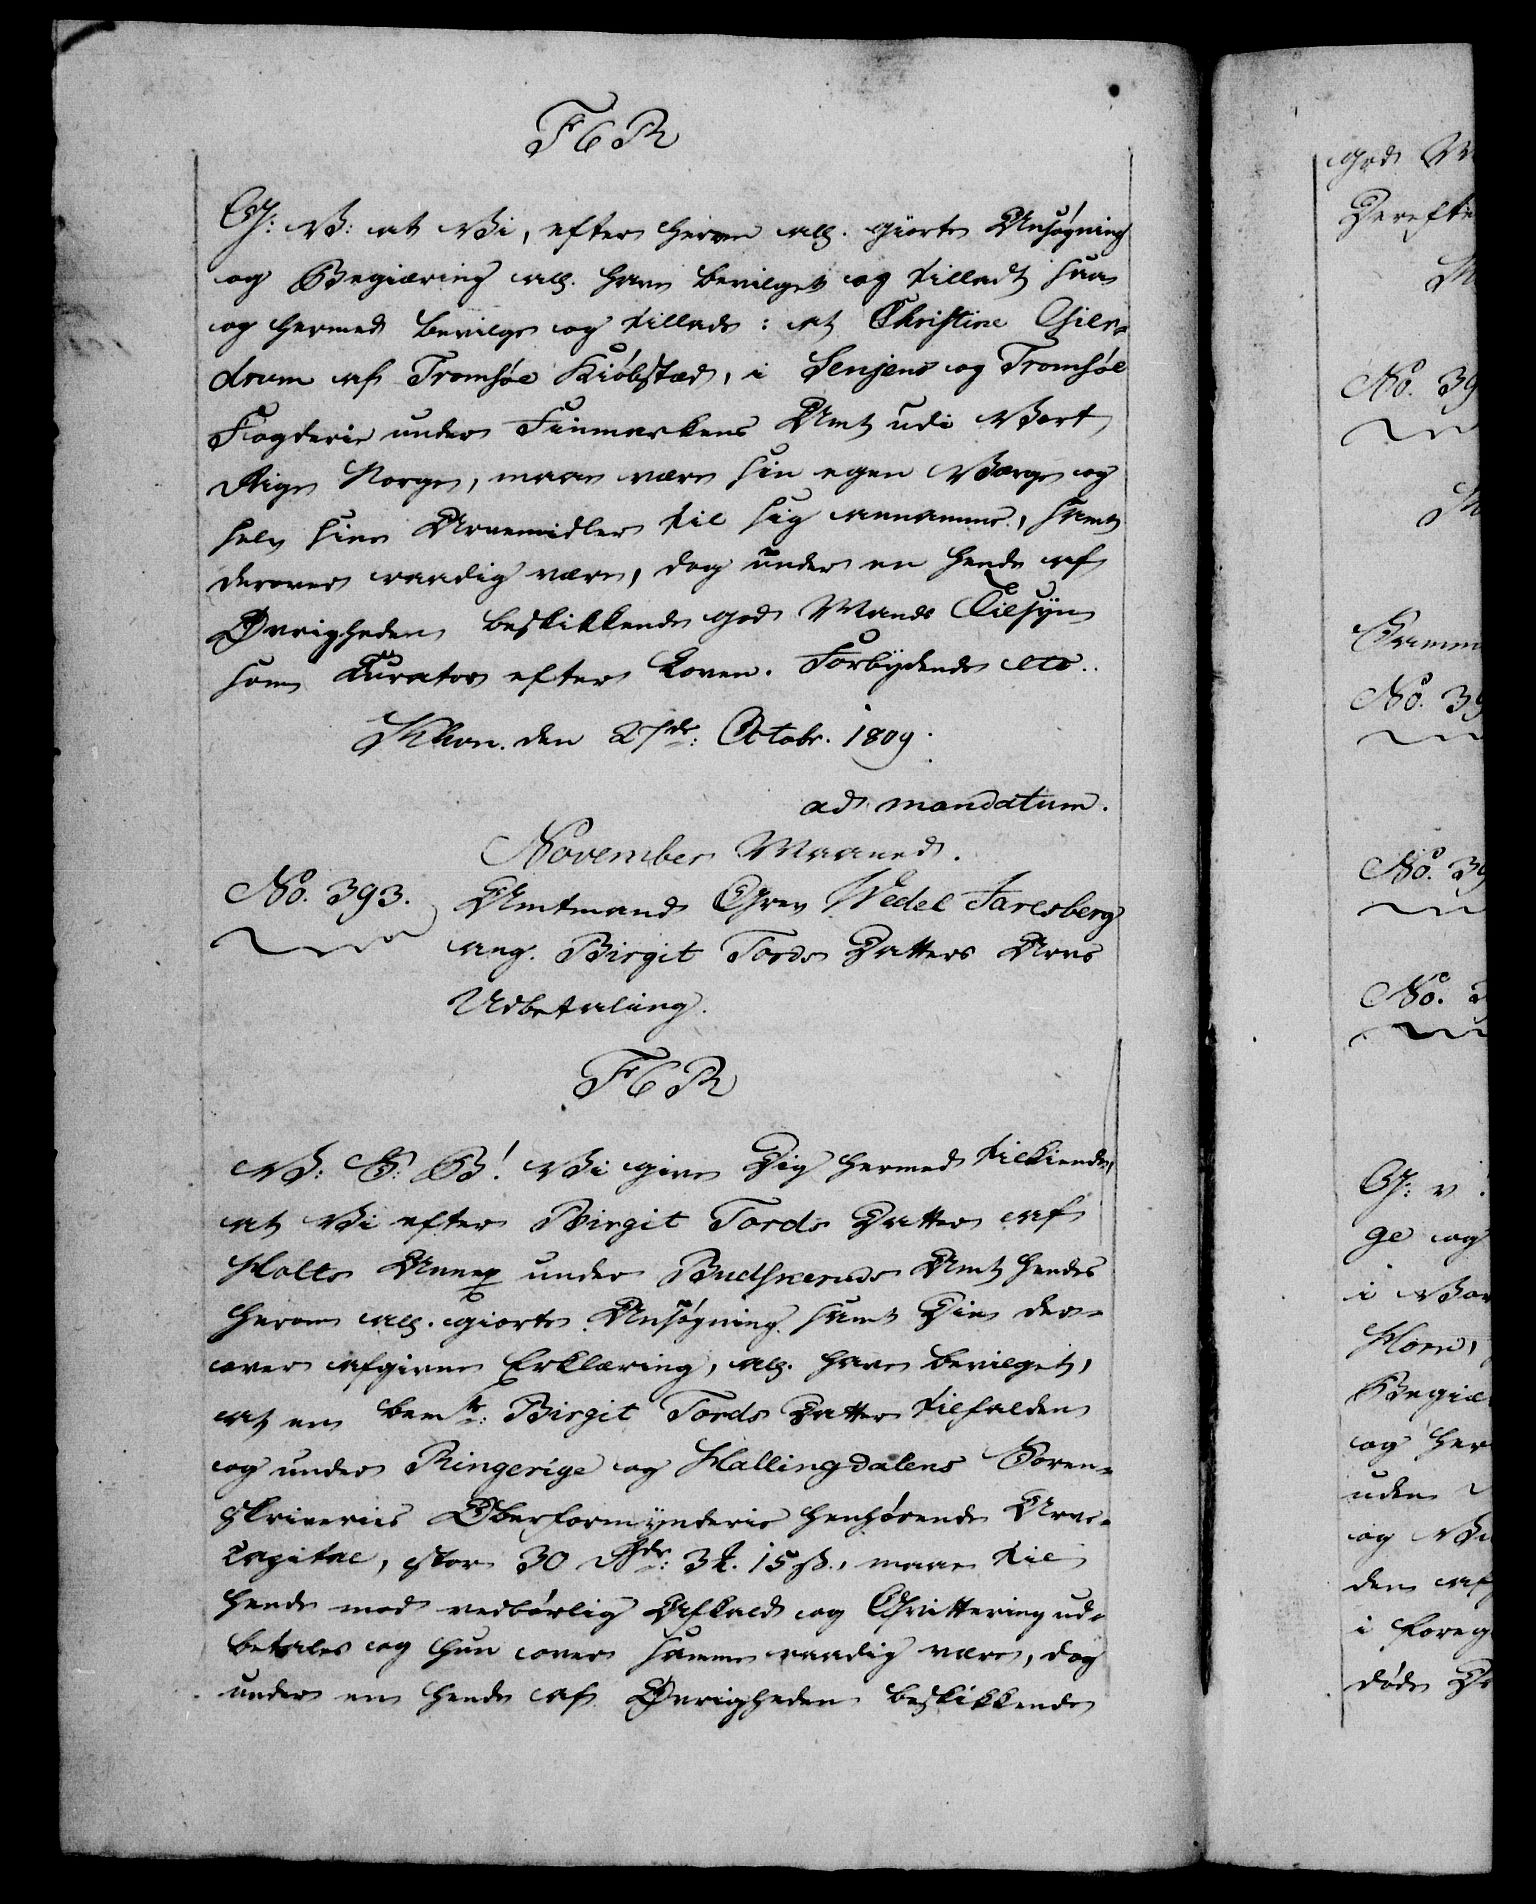 F6R
G: V: at Vi, efter herom all. giorte Ansøgning
og Begiæring all. have bevilget og tilladt, saa
og hermed bevilge og tillade: at Christine Gier-
drum af Tromsøe Kiøbstæd, i Senjens og Tromsøe
Fogderie under Finmarkens Amt udi Vort
Rige Norge, maae være sin egen Værge og
selv sine Arvemidler til sig annamme, samt
derover raadig være, dog under en hende af
Øvrigheden beskikkende god Mands Tilsyn
som Curator efter Loven. Forbydende etc.
Khvn. den 27de: Octobr. 1809.
ad mandatum.
November Maaned.
No. 393.
Amtmand Grev Wedel Jarlsberg
ang. Birgit Tords Datters Arvs
Udbetaling.
F6R
V: G: B! Vi give Dig hermed tilkiende,
at Vi efter Birgit Tords Datter af
Holts Annex under Budskeruds Amt hendes
herom all. giorte Ansøgning samt Din der-
over afgivne Erklæring, all. have bevilget,
at en bemte: Birgit Tords Datter tilfalden
og under Ringerige og Hallingdalens Soren-
skriveries Oberformynderie henhørende Arve-
Capital, stor 30 Rdr: 3 . 15 ß., maae til
hende mod vedbørlig Afkald og Qvittering ud-
betales og hun over samme raadig være, dog
under en hende af Øvrigheden beskikkende
god
Derefte
No. 39
No. 39
No. 39
No.
G: v
ge og
i Vor
Horn,
Begiæ
og her
uden
og
den af
i foreg
døde